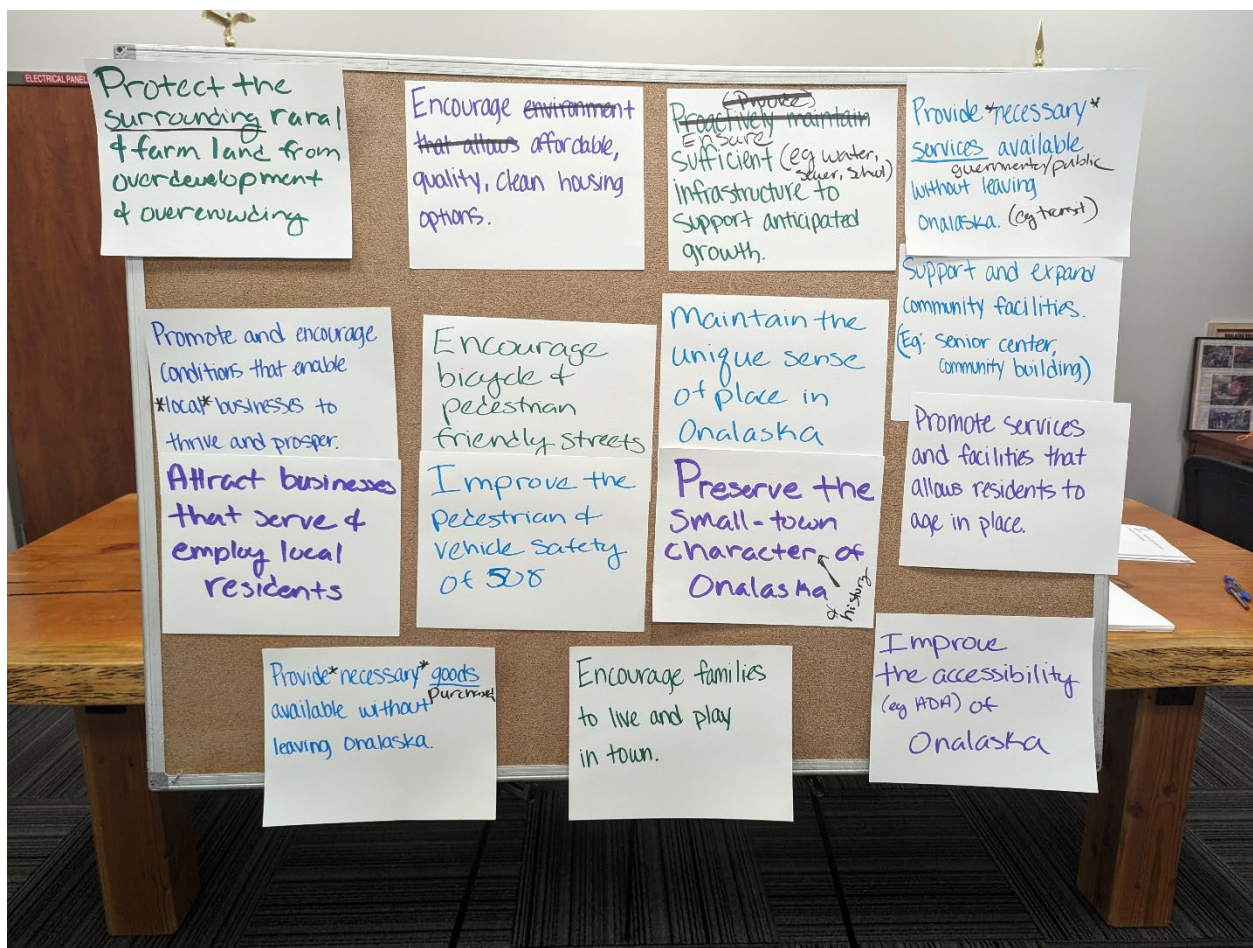 ELECTRICAL PANEL
Protect the
surrounding rural
& farm land from
overdevelopment
& overcrowding
Encourage environment
that allows affordable,
quality, clean housing
options.
(Provide)
Proactively maintain
Ensure
sufficient (eg water,
sewer, school)
infrastructure to
support anticipated
growth.
Provide *necessary*
services available
governmental/public
without leaving
Onalaska. (eg transit)
Support and expand
community facilities.
(Eg: senior center,
community building)
Promote and encourage
conditions that enable
*local* businesses to
thrive and prosper.
Encourage
bicycle &
pedestrian
friendly streets
Maintain the
unique sense
of place in
Onalaska
Promote services
and facilities that
allows residents to
age in place.
Attract businesses
that serve &
employ local
residents
Improve the
pedestrian &
vehicle safety
of 508
Preserve the
small-town
character of
Onalaska
& history
Provide *necessary* goods
purchased
available without
leaving Onalaska.
Encourage families
to live and play
in town.
Improve
the accessibility
(eg ADA) of
Onalaska